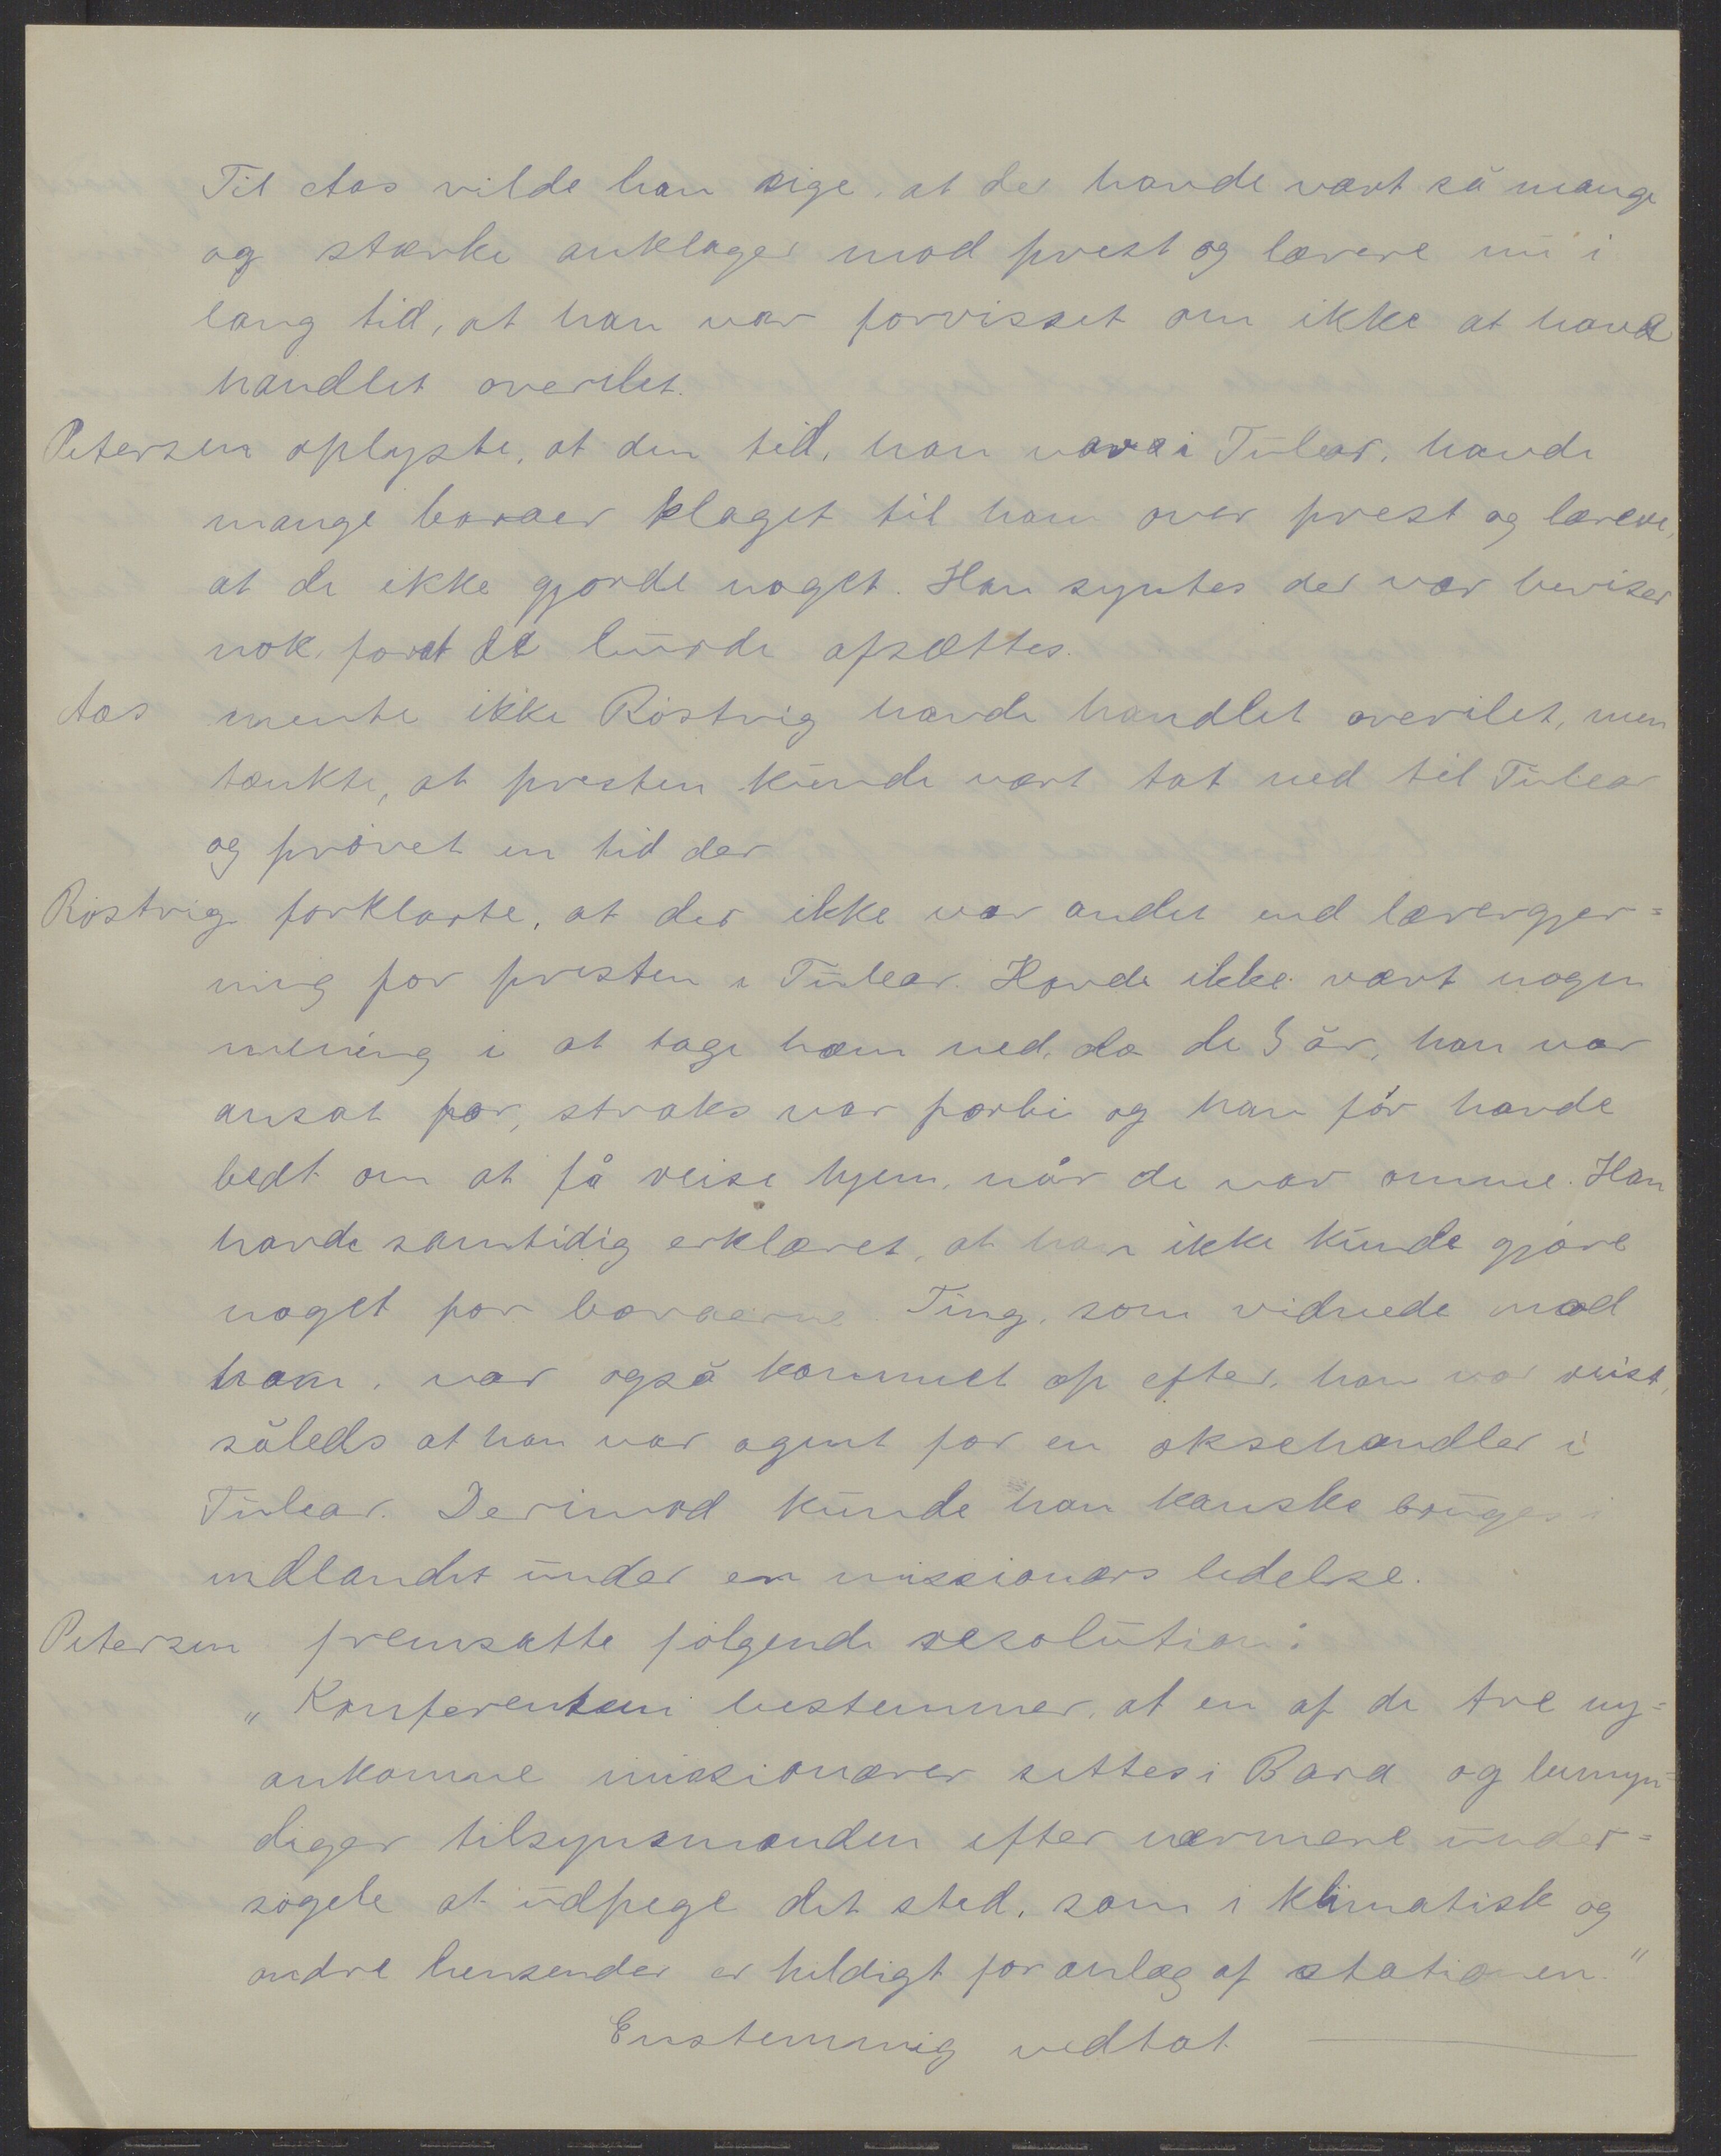 Til Aas vilde han sige, at der havde vært så mange
og stærke anklager mod prest og lærere nu i
lang tid, at han var forvisset om ikke at have
handlet overilet.
Petersen oplyste, at den tid, han var i Tulear, havde
mange baraer klaget til ham over prest og lærere,
at de ikke gjorde noget. Han syntes der var beviser
nok for at de burde afsættes.
Aas mente ikke Röstvig havde handlet overilet, men
tænkte, at presten kunde vært tat ned til Tulear
og prövet en tid der
Röstvig forklarte, at der ikke var andet end lærergjer=
ning for presten i Tulear. Havde ikke vært nogen
mening i at tage ham ned, da de 5 år, han var
ansat for, straks var forbi og han för havde
bedt om at få reise hjem, når de var omme. Han
havde samtidig erklæret, at han ikke kunde gjöre
noget for baraerne. Ting, som vidnede mod
ham, var også kommet op efter, han var reist,
således at han var agent for en oksehandler i
Tulear. Derimod kunde han kanske bruges i
indlandet under en missionærs ledelse.
Petersen fremsatte fölgende resolution:
„Konferentsen bestemmer, at en af de tre ny=
ankomne missionærer settes i Bara og bemyn=
diger tilsynsmanden efter nærmere under=
sögele at udpege det sted, som i klimatisk og
andre hensender er heldigt for anlæg af stationen."
Enstemmig vedtat